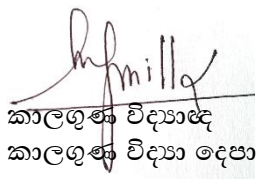 කාලගුණ විද්‍යාඥ
කාලගුණ විද්‍යා දෙපා